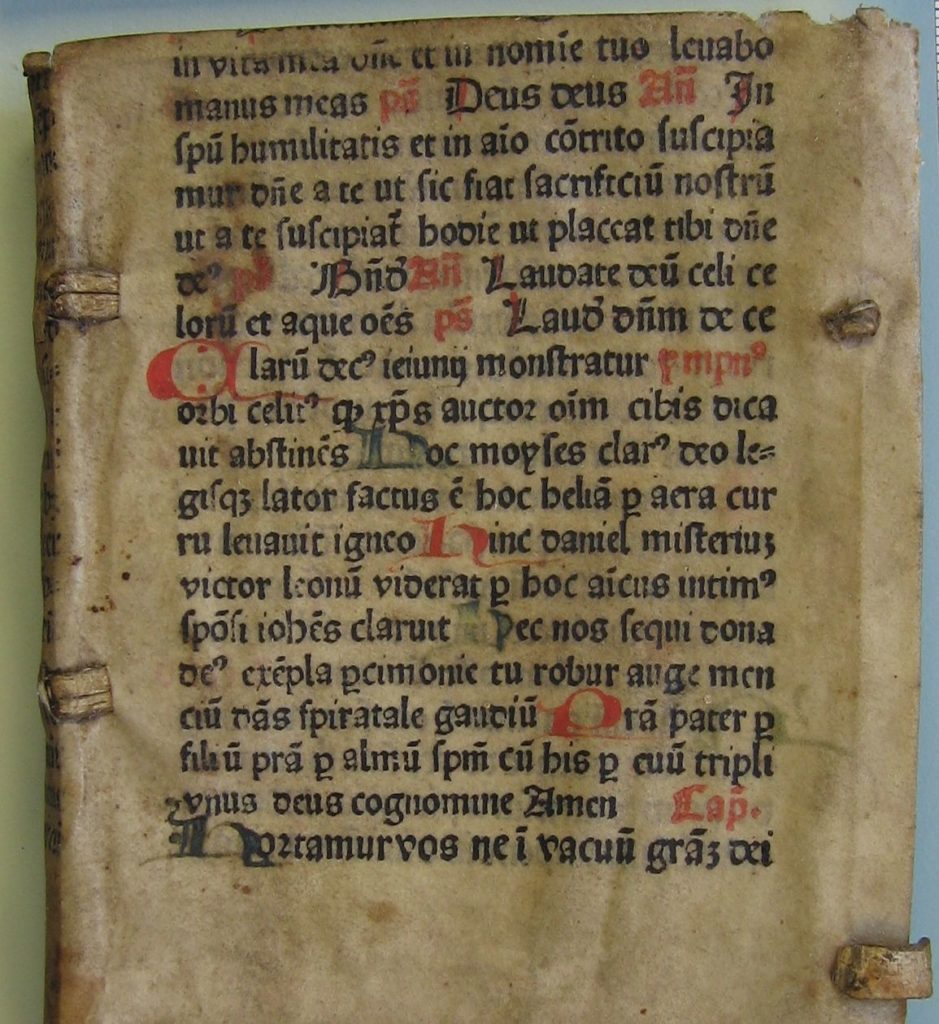 in vita mea dn̄e et in nomīe tuo leuabo
manus meas ps̄ Deus deus Añ In
spū humilitatis et in aīo cōtrito suscipia
mur dn̄e a te ut sic fiat sacrificiū nostrū
ut a te suscipiat̄ hodie ut placcat tibi dn̄e
deꝰ ps̄ Bn̄d Añ Laudate deū celi ce
lorū et aque oēs ps̄ Laud dn̄m de ce
Clarū decꝰ ieiunij monstratur ympnꝰ
orbi celitꝰ qꝫ xp̄s auctor oīm cibis dica
uit abstinēs Hoc moyses clarꝰ deo le=
gisqꝫ lator factus ē hoc heliā ꝑ aera cur
ru leuauit igneo Hinc daniel misteriuꝫ
victor leonū viderat ꝑ hoc aīcus intimꝰ
spōsi iohēs claruit Hec nos sequi dona
deꝰ exēpla ꝑcimonie tu robur auge men
ciū dās spiratale gaudiū Orā pater ꝑ
filiū prā ꝑ almū spm̄ cū his ꝑ euū tripli
vnus deus cognomine Amen Cap̄.
Hortamur vos ne ī vacuū grāꝫ dei